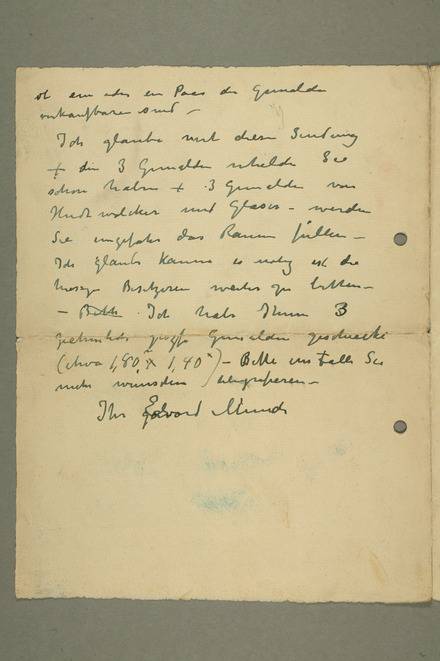 ob ein oder ein Paar der Gemälde
verkaufbare sind –
Ich glaube mit dieser Sendung
+ die 3 Gemälden welche Sie
schon haben + 3 Gemälden von
Hudtwalcker und Glaser – werden
Sie ungefähr das Raum füllen –
Ich glaube kaum es nötig ist die
Besitzeren weiter zu bitten –
– Bitte Ich habe Ihnen 3
große Gemälden geschickt
(etwa 1,80 × 1,40) – Bitte im Falle Sie
mehr wünschen telegrafieren –
Ihr Edvard Munch